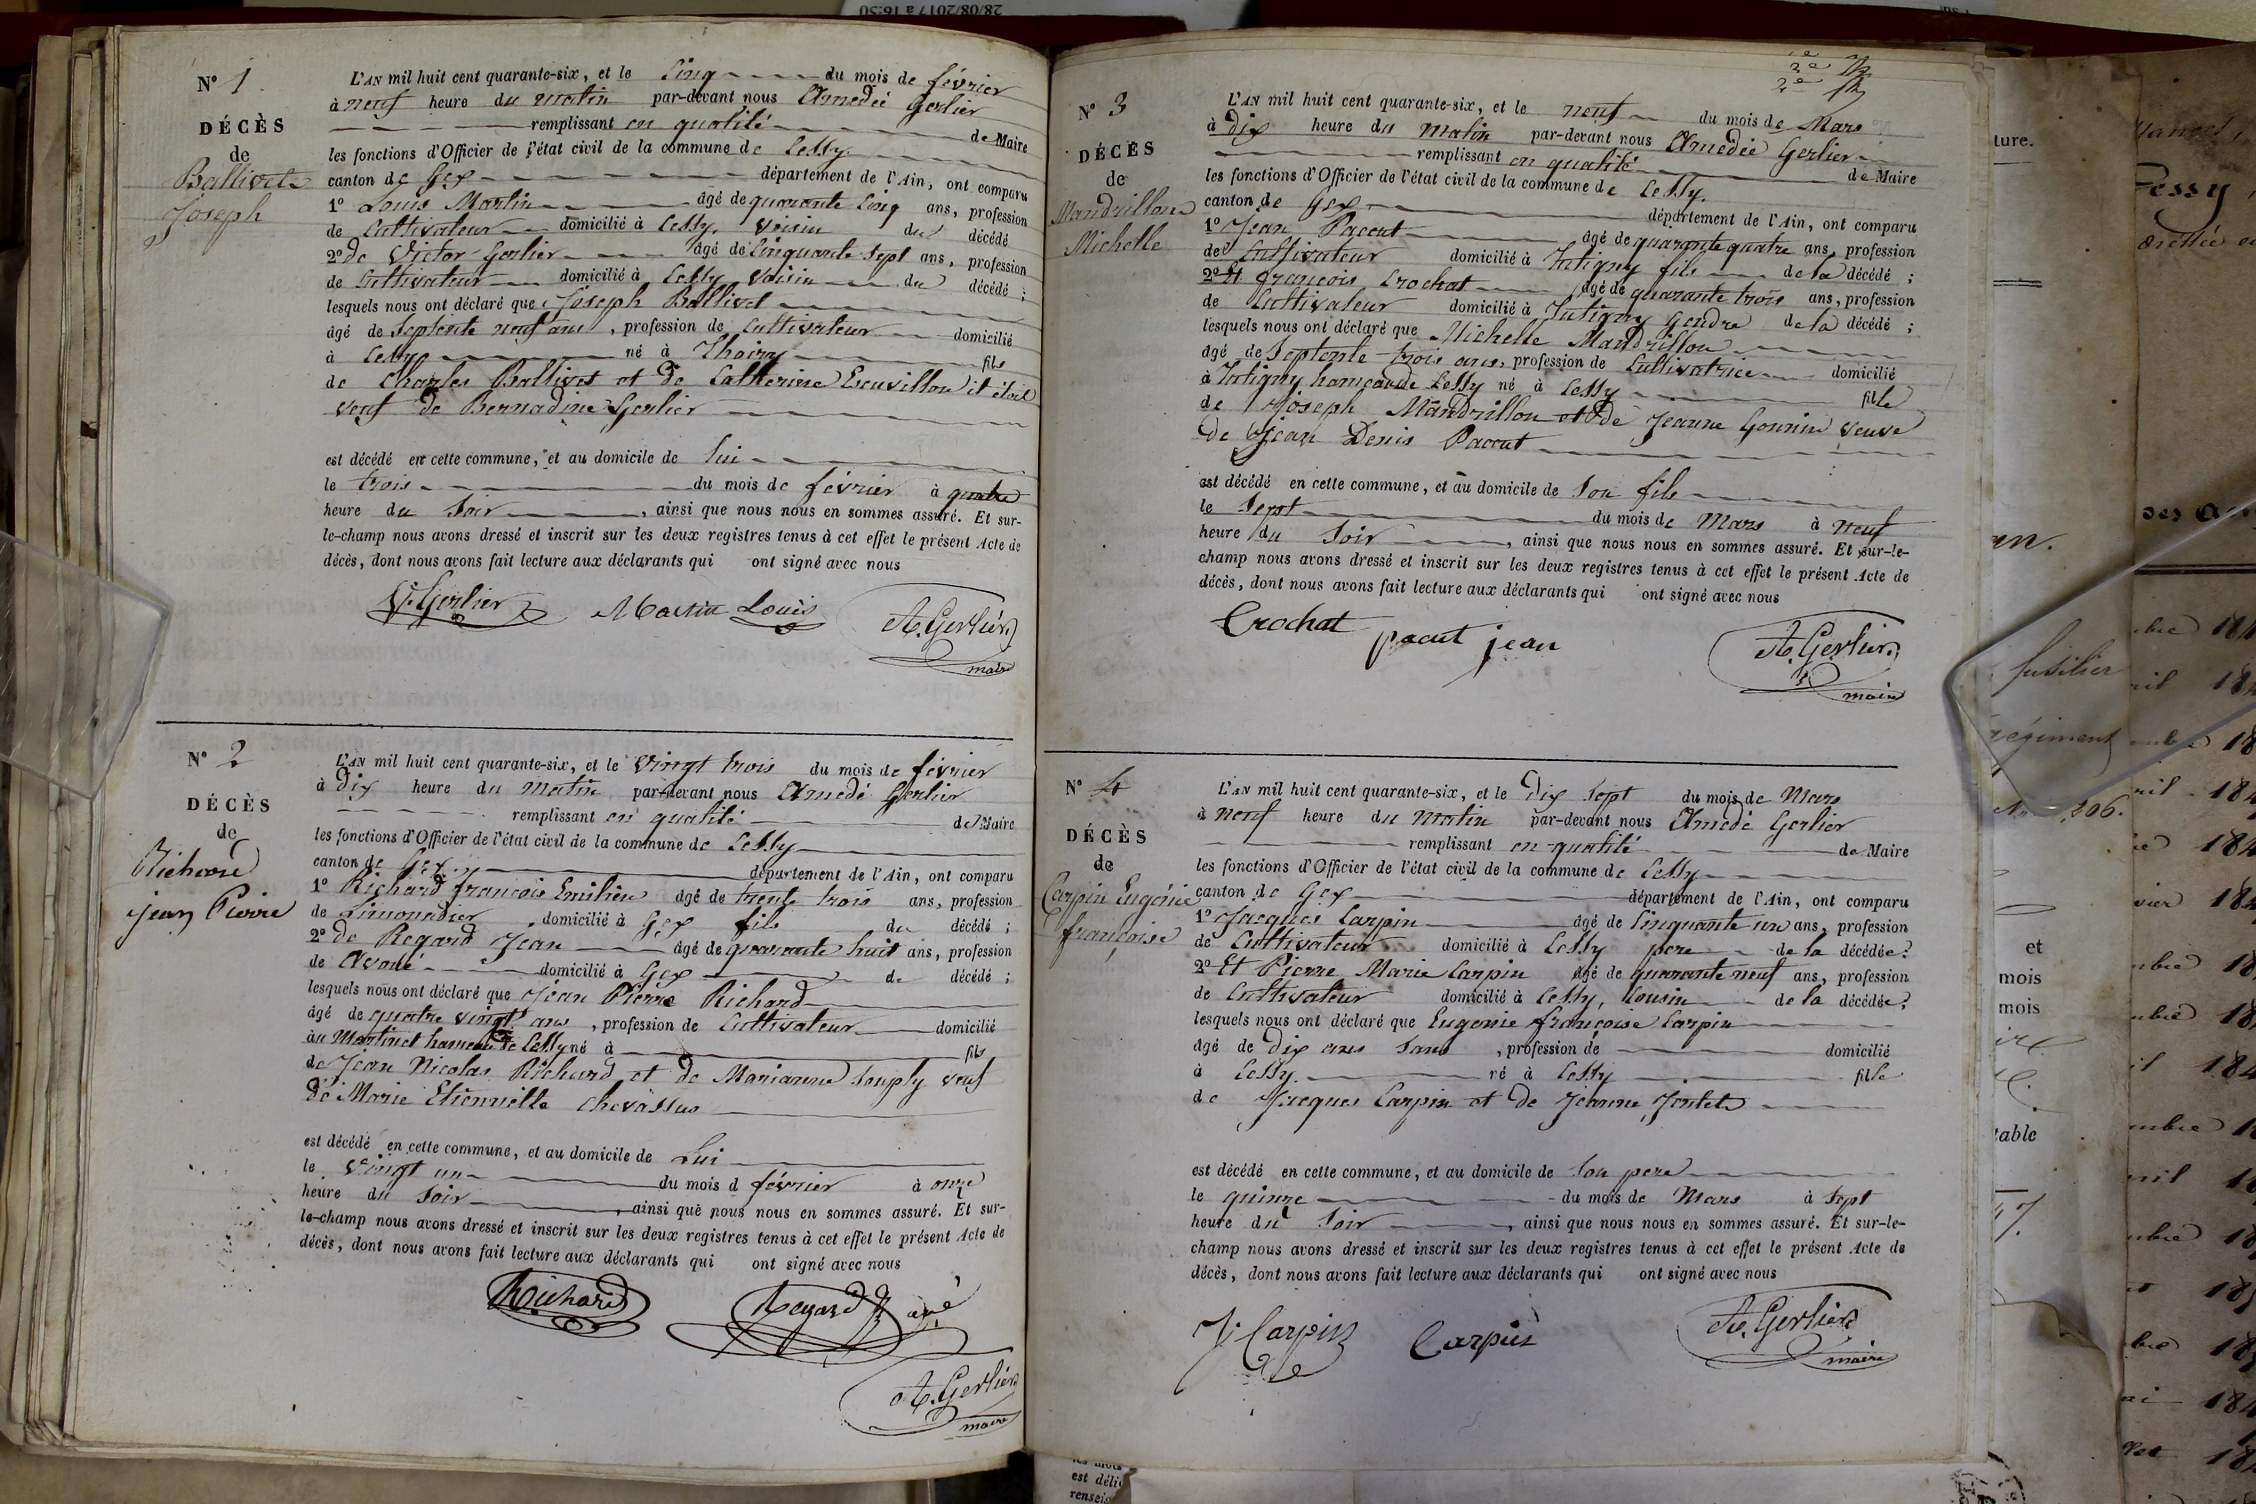 28/08/2017 à 16:30
N° 1
DÉCÈS
de
Ballivet
Joseph
L'AN mil huit cent quarante-six, et le Cinq du mois de février
à neuf heure du matin par-devant nous Amedée Gerlier
remplissant en qualité de Maire
les fonctions d'Officier de l'état civil de la commune de Cessy
canton de Gex département de l'Ain, ont comparu
1° Louis Martin âgé de quarante Cinq ans, profession
de Cultivateur domicilié à Cessy, voisin du décédé
2° de Victor Gerlier âgé de Cinquante Sept ans, profession
de Cultivateur domicilié à Cessy Voisin du décédé ;
lesquels nous ont déclaré que Joseph Ballivet
âgé de Septente neuf ans, profession de Cultivateur domicilié
à Cessy né à Thoiry fils
de Charles Ballivet et de Catherine Ecuvillon il était
veuf de Bernadine Gerlier
est décédé en cette commune, et au domicile de lui
le trois du mois de février à quatre
heure du Soir, ainsi que nous nous en sommes assuré. Et sur-
le-champ nous avons dressé et inscrit sur les deux registres tenus à cet effet le présent Acte de
décès, dont nous avons fait lecture aux déclarants qui ont signé avec nous
V. Gerlier Martin Louis A. Gerlier
maire
N° 2
DÉCÈS
de
Richard
Jean Pierre
L'AN mil huit cent quarante-six, et le Vingt trois du mois de février
à Dix heure du matin par-devant nous Amedé Gerlier
remplissant en qualité de Maire
les fonctions d'Officier de l'état civil de la commune de Cessy
canton de Gex département de l'Ain, ont comparu
1° Richard françois Emilien âgé de trente trois ans, profession
de Limonadier domicilié à Gex fils du décédé ;
2° de Regard Jean âgé de quarante huit ans, profession
de Avoué domicilié à Gex de décédé ;
lesquels nous ont déclaré que Jean Pierre Richard
âgé de quatre vingt ans, profession de Cultivateur domicilié
au Martinet hameau de Cessy né à fils
de Jean Nicolas Richard et de Marianne Souply veuf
de Marie Etiennette Chevassus
est décédé en cette commune, et au domicile de Lui
le Vingt un du mois d février à onze
heure du Soir, ainsi que nous nous en sommes assuré. Et sur-
le-champ nous avons dressé et inscrit sur les deux registres tenus à cet effet le présent Acte de
décès, dont nous avons fait lecture aux déclarants qui ont signé avec nous
Richard Regard J. avé
A. Gerlier
maire
N° 3
DÉCÈS
de
Mandrillon
Michelle
L'AN mil huit cent quarante-six, et le neuf du mois de Mars
à dix heure du matin par-devant nous Amedée Gerlier
remplissant en qualité de Maire
les fonctions d'Officier de l'état civil de la commune de Cessy.
canton de Gex département de l'Ain, ont comparu
1° Jean Pacout âgé de quarante quatre ans, profession
de Cultivateur domicilié à Tutigny fils de la décédé ;
2° Et françois Crochat âgé de quarante trois ans, profession
de Cultivateur domicilié à Tutigny gendre de la décédé ;
lesquels nous ont déclaré que Michelle Mandrillon
âgé de Septente-trois ans, profession de Cultivatrice domicilié
à Tutigny hameau de Cessy né à Cessy fille
de Joseph Mandrillon et de Jeanne Gonnin veuve
de Jean Denis Pacout
est décédé en cette commune, et au domicile de Son fils
le Sept du mois de Mars à neuf
heure du Soir, ainsi que nous nous en sommes assuré. Et sur-le-
champ nous avons dressé et inscrit sur les deux registres tenus à cet effet le présent Acte de
décès, dont nous avons fait lecture aux déclarants qui ont signé avec nous
Crochat pacut jean A. Gerlier
maire
N° 4
DÉCÈS
de
Carpin Eugénie
françoise
L'AN mil huit cent quarante-six, et le Dix Sept du mois de Mars
à neuf heure du Matin par-devant nous Amedé Gerlier
remplissant en qualité de Maire
les fonctions d'Officier de l'état civil de la commune de Cessy
canton de Gex département de l'Ain, ont comparu
1° Jacques Carpin âgé de Cinquante un ans, profession
de Cultivateur domicilié à Cessy pere de la décédée ;
2° Et Pierre Marie Carpin âgé de quarante neuf ans, profession
de Cultivateur domicilié à Cessy, Cousin de la décédée ;
lesquels nous ont déclaré que Eugenie françoise Carpin
âgé de dix ans Sans, profession de domicilié
à Cessy né à Cessy fille
de Jacques Carpin et de Jeanne Jentet
est décédé en cette commune, et au domicile de Son pere
le quinze du mois de Mars à Sept
heure du Soir, ainsi que nous nous en sommes assuré. Et sur-le-
champ nous avons dressé et inscrit sur les deux registres tenus à cet effet le présent Acte de
décès, dont nous avons fait lecture aux déclarants qui ont signé avec nous
J. Carpin Carpin A. Gerlier
maire
ture.
fusilier
régiment
306.
et
mois
mois
table
est déli